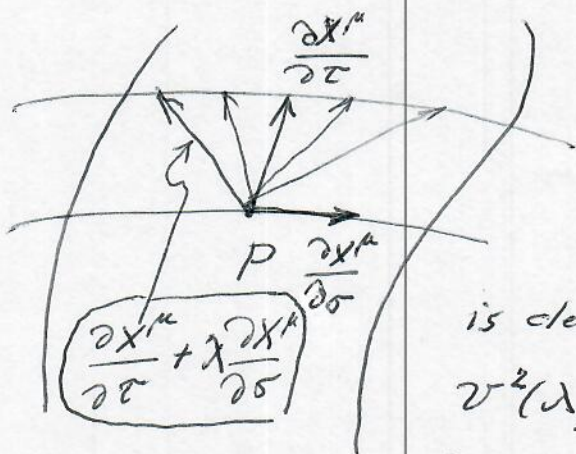 ∂X^μ/∂τ
P ∂X^μ/∂σ
∂X^μ/∂τ + λ ∂X^μ/∂σ
is cle
v²(λ)